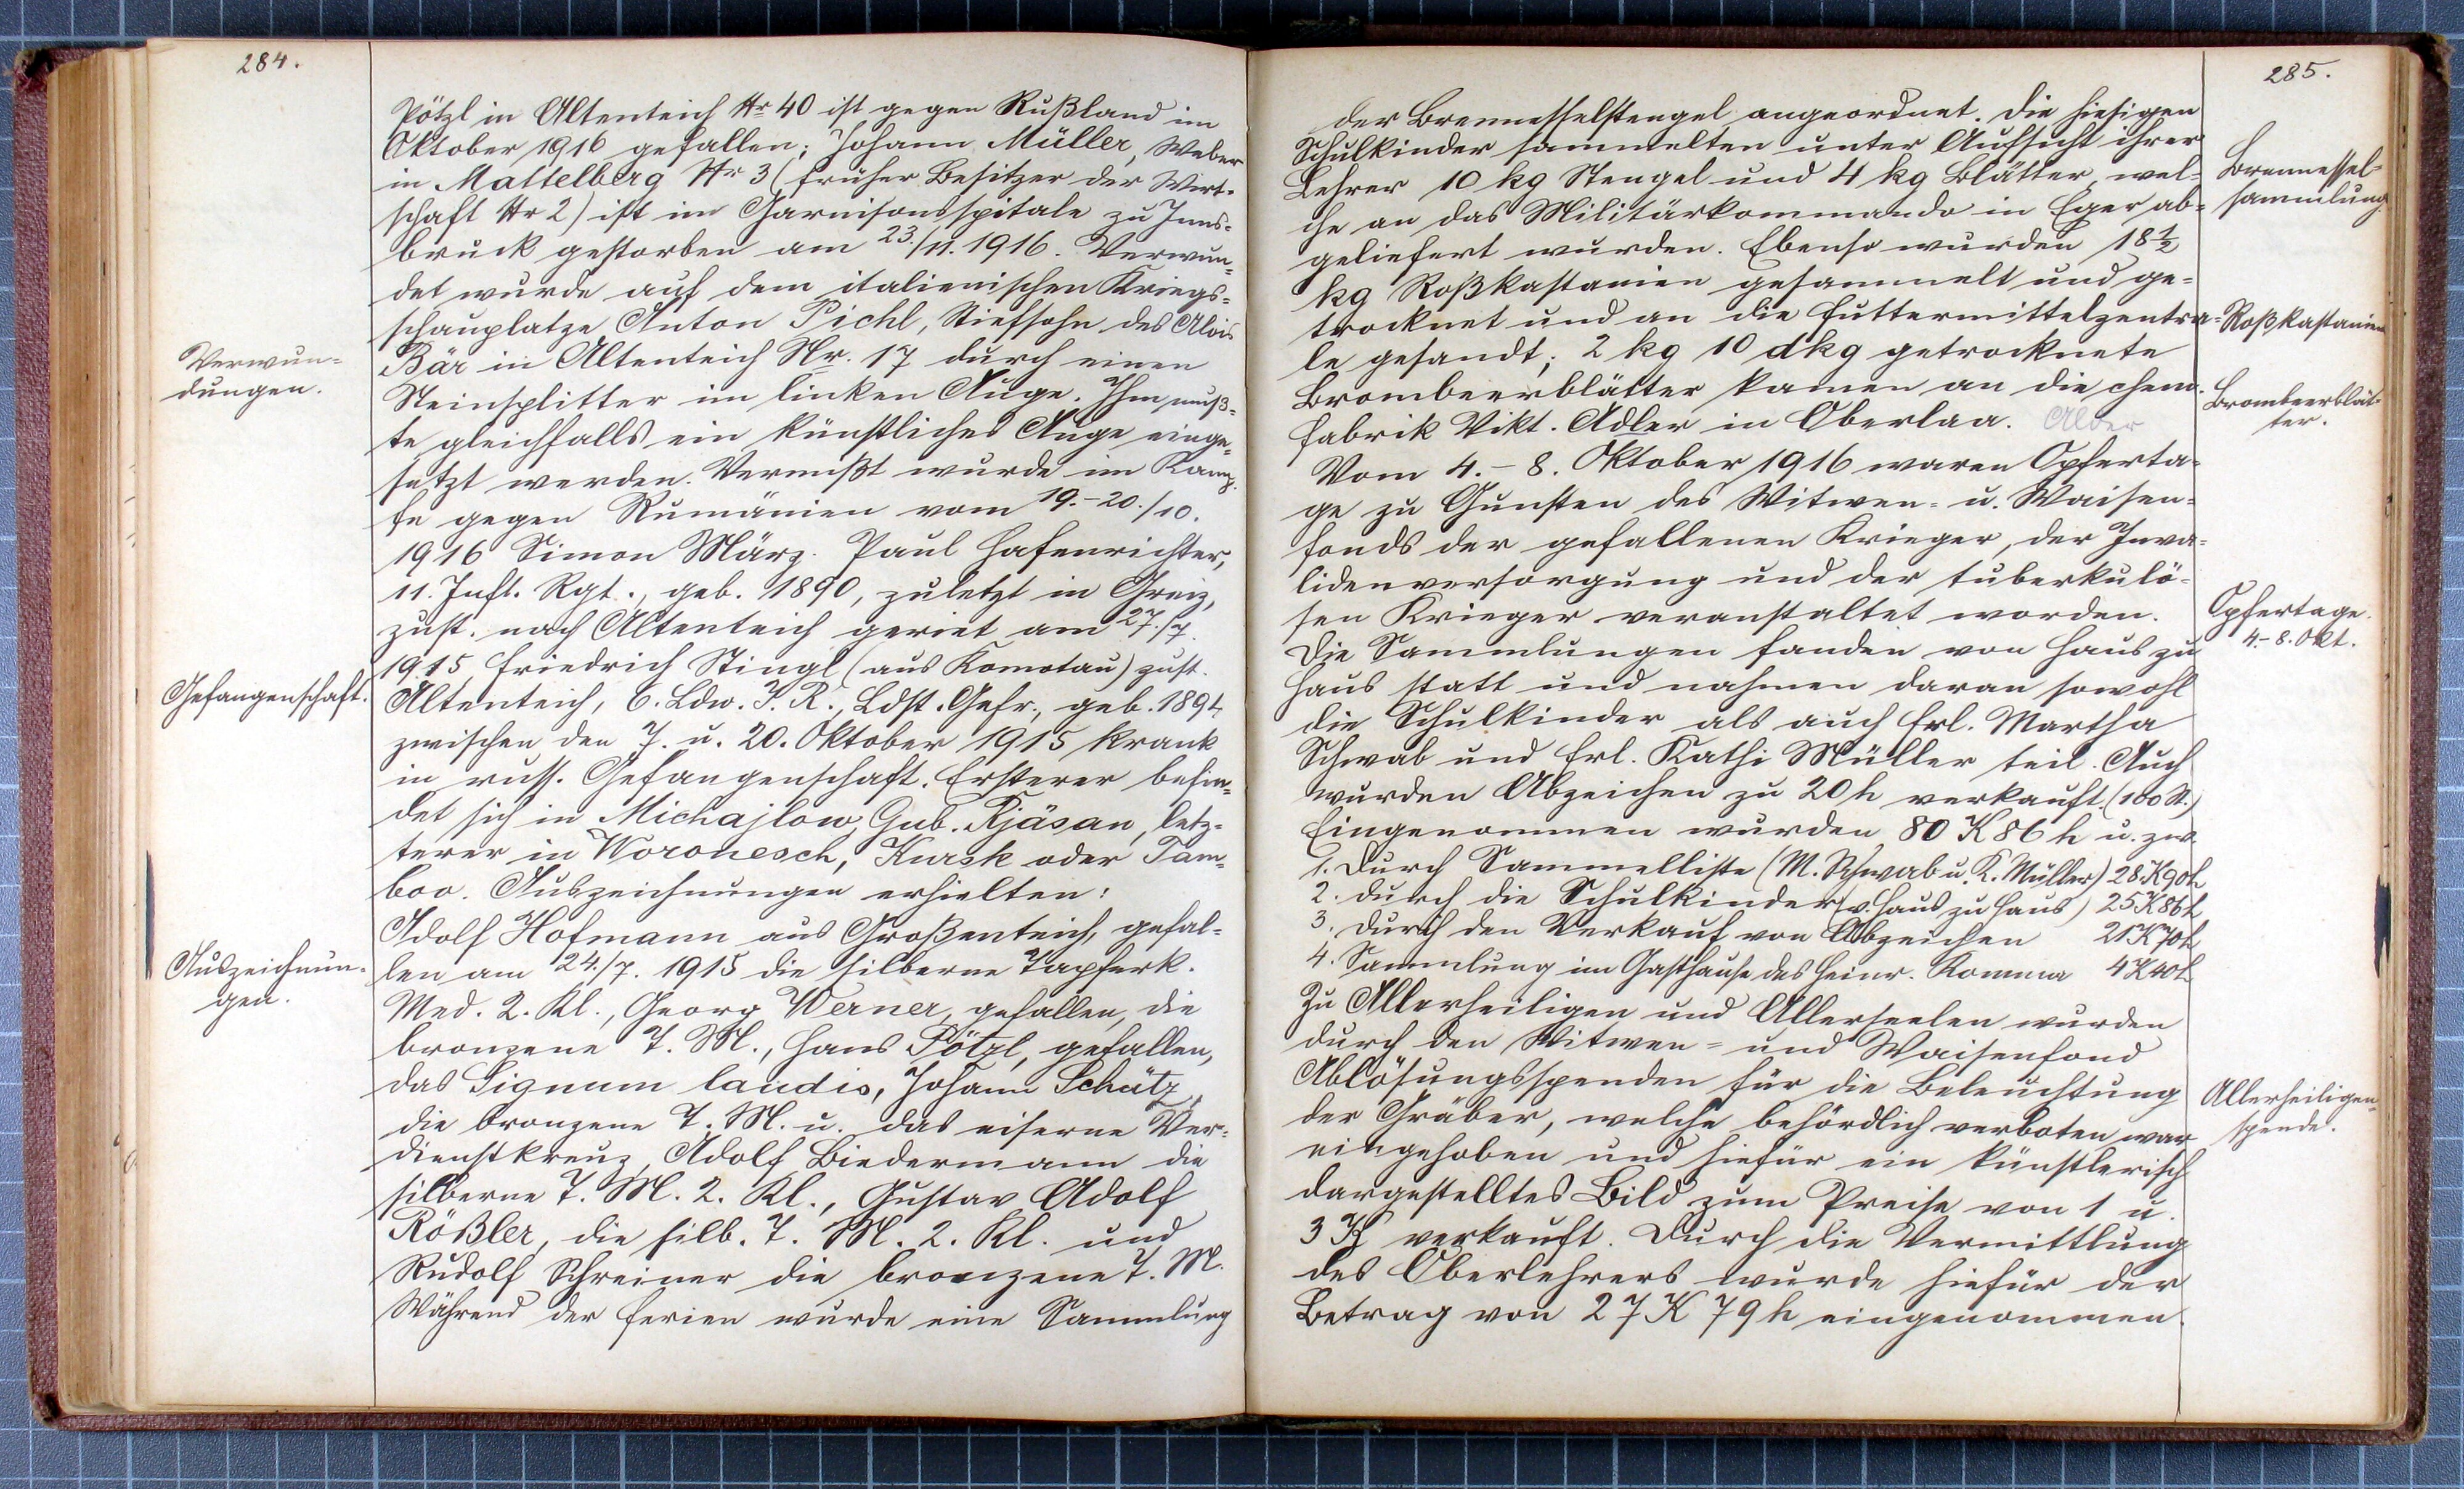 284.
Pötzl in Altenteich Nr 40 ist gegen Rußland im
Oktober 1916 gefallen; Johann Müller, Weber
in Mattelberg Nr 3 (früher Besitzer der Wirt-
schaft Nr 2) ist im Garnisonsspitale zu Inns-
bruck gestorben am 23./11. 1916. Verwun-
det wurde auf dem italienischen Kriegs-
schauplatze Anton Pichl, Stiefsohn des Alois
Verwun-
dungen.
Bär in Altenteich Nr. 17 durch einen
Steinsplitter im linken Auge. Ihm muß-
te gleichfalls ein künstliches Auge einge-
setzt werden. Vermißt wurde im Kamp-
fe gegen Rumänien vom 19.-20./10.
1916 Simon März. Paul Hafenrichter,
11. Inft. Rgt., geb. 1890, zuletzt in Greiz,
zust. nach Altenteich geriet am 27./7.
1915, Friedrich Stingl (aus Komotau) zust.
Gefangenschaft.
Altenteich, 6. Ldw. I. R., Ldst. Gefr., geb. 1894
zwischen den 7. u. 20. Oktober 1915 krank
in russ. Gefangenschaft. Ersterer befin-
det sich in Michajlow, Gub. Rjäsan, letz-
terer in Woronesch, Kursk oder Tam-
boo. Auszeichnungen erhielten:
Adolf Hofmann aus Großenteich, gefal-
Auszeichnun-
gen.
len am 24./7. 1915 die silberne Tapferk.
Med. 2. Kl., Georg Werner, gefallen, die
bronzene T. M., Hans Pötzl, gefallen,
das Signum laudis, Johann Schütz,
die bronzene T. M. u. das eiserne Ver-
dienstkreuz, Adolf Biedermann die
silberne T. M. 2. Kl., Gustav Adolf
Rößler, die silb. T. M. 2. Kl. und
Rudolf Schreiner die bronzene T. M.
Während der Ferien wurde eine Sammlung
285.
der Brennesselstengel angeordnet. Die hiesigen
Schulkinder sammelten unter Aufsicht ihrer
Lehrer 10 kg Stengel und 4 kg Blätter, wel-
Brennessel-
sammlung.
che an das Militärkommando in Eger ab-
geliefert wurden. Ebenso wurden 18½
kg Roßkastanien gesammelt und ge-
trocknet und an die Futtermittelzentra-
Roßkastanien
le gesandt; 2 kg 10 dkg getrocknete
Brombeerblätter kamen an die chem.
Brombeerblät-
ter.
Fabrik Vikt. Adler in Oberlaa. Alder
Vom 4.-8. Oktober 1916 waren Opferta-
ge zu Gunsten des Witwen- u. Waisen-
fonds der gefallenen Krieger, der Inva-
lidenversorgung und der tuberkulö-
sen Krieger veranstaltet worden.
Opfertage.
4.-8. Okt.
Die Sammlungen fanden von Haus zu
Haus statt und nahmen daran sowohl
die Schulkinder als auch Frl. Martha
Schwab und Frl. Kathi Müller teil. Auch
wurden Abzeichen zu 20 h verkauft. (100 St.)
Eingenommen wurden 80 K 86 h u. zw.
1. Durch Sammelliste (M. Schwab u. K. Müller) 28 K 90 h
2. Durch die Schulkinder (v. Haus zu Haus) 25 K 86 h
3. Durch den Verkauf von Abzeichen 21 K 70 h
4. Sammlung im Gasthause des Heinr. Komma 4 K 40 h
Zu Allerheiligen und Allerseelen wurden
durch den Witwen- und Waisenfond
Ablösungsspenden für die Beleuchtung
Allerheiligen-
spende.
der Gräber, welche behördlich verboten war
eingehoben und hiefür ein künstlerisch
dargestelltes Bild zum Preise von 1 u.
3 K verkauft. Durch die Vermittlung
des Oberlehrers wurde hiefür der
Betrag von 27 K 79 h eingenommen.